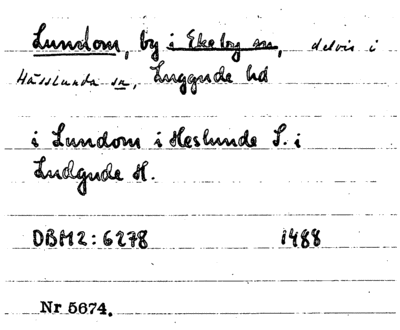 Lundom, by i Ekeby sn, delvis i
Hässlunda sn, Luggude hd
i Lundom i Heslunde S. i
Ludgude H.
DBM2:6278 1488
Nr 5674.